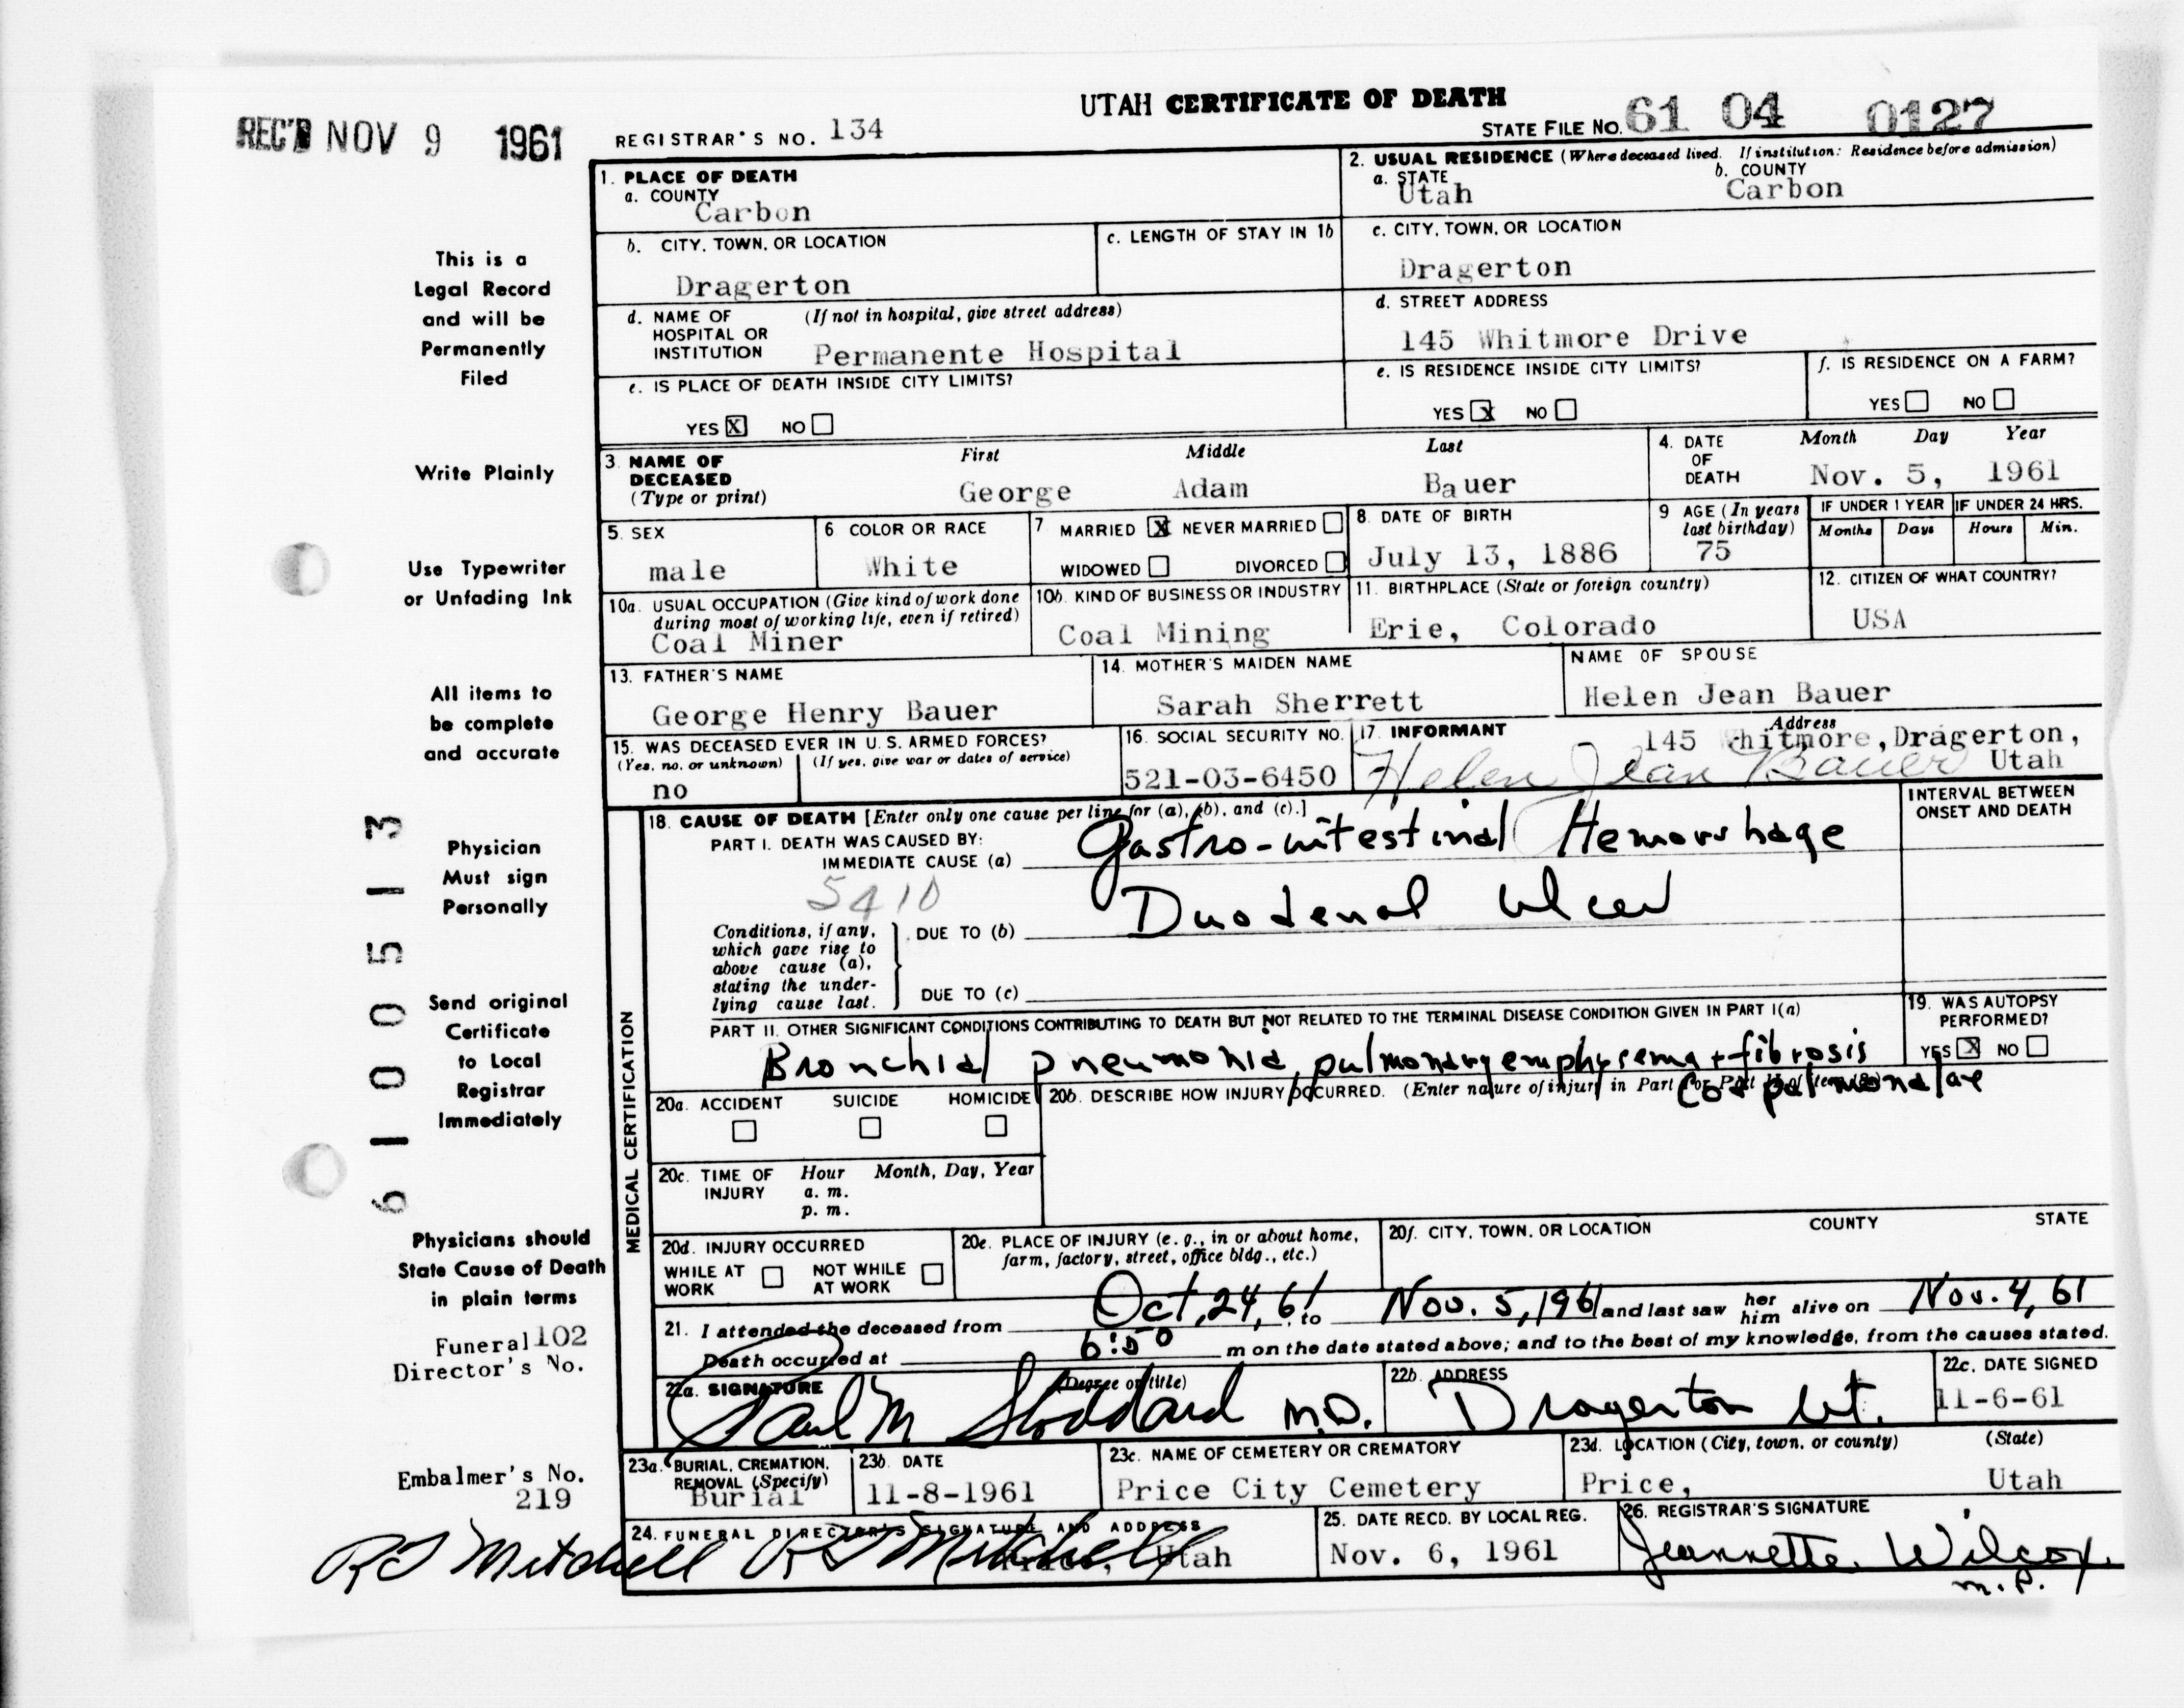 UTAH CERTIFICATE OF DEATH
REC'D NOV 9 1961
REGISTRAR'S NO. 134
STATE FILE NO. 61 04 0127
1. PLACE OF DEATH
a. COUNTY
Carbon
2. USUAL RESIDENCE (Where deceased lived. If institution: Residence before admission)
a. STATE b. COUNTY
Utah Carbon
b. CITY, TOWN, OR LOCATION
Dragerton
c. LENGTH OF STAY IN 1b
c. CITY, TOWN, OR LOCATION
Dragerton
d. NAME OF (If not in hospital, give street address)
HOSPITAL OR
INSTITUTION Permanente Hospital
d. STREET ADDRESS
145 Whitmore Drive
e. IS PLACE OF DEATH INSIDE CITY LIMITS?
YES X NO
e. IS RESIDENCE INSIDE CITY LIMITS?
YES X NO
f. IS RESIDENCE ON A FARM?
YES NO
3. NAME OF
DECEASED
(Type or print)
First Middle Last
George Adam Bauer
4. DATE
OF
DEATH
Month Day Year
Nov. 5, 1961
5. SEX
male
6 COLOR OR RACE
White
7. MARRIED X NEVER MARRIED
WIDOWED DIVORCED
8. DATE OF BIRTH
July 13, 1886
9 AGE (In years
last birthday)
75
IF UNDER 1 YEAR IF UNDER 24 HRS.
Months Days Hours Min.
10a. USUAL OCCUPATION (Give kind of work done
during most of working life, even if retired)
Coal Miner
10b. KIND OF BUSINESS OR INDUSTRY
Coal Mining
11. BIRTHPLACE (State or foreign country)
Erie, Colorado
12. CITIZEN OF WHAT COUNTRY?
USA
13. FATHER'S NAME
George Henry Bauer
14. MOTHER'S MAIDEN NAME
Sarah Sherrett
NAME OF SPOUSE
Helen Jean Bauer
15. WAS DECEASED EVER IN U.S. ARMED FORCES?
(Yes, no, or unknown) (If yes, give war or dates of service)
no
16. SOCIAL SECURITY NO.
521-03-6450
17. INFORMANT Address
145 Whitmore, Dragerton,
Helen Jean Bauer Utah
MEDICAL CERTIFICATION
18. CAUSE OF DEATH [Enter only one cause per line for (a), (b), and (c).]
PART I. DEATH WAS CAUSED BY:
IMMEDIATE CAUSE (a) Gastro-intestinal Hemorrhage
5410
Conditions, if any,
which gave rise to
above cause (a),
stating the under-
lying cause last.
DUE TO (b) Duodenal ulcer
DUE TO (c)
INTERVAL BETWEEN
ONSET AND DEATH
PART II. OTHER SIGNIFICANT CONDITIONS CONTRIBUTING TO DEATH BUT NOT RELATED TO THE TERMINAL DISEASE CONDITION GIVEN IN PART I(a)
Bronchial pneumonia, pulmonary emphysema + fibrosis
Cor pulmonale
19. WAS AUTOPSY
PERFORMED?
YES X NO
20a. ACCIDENT SUICIDE HOMICIDE
20b. DESCRIBE HOW INJURY OCCURRED. (Enter nature of injury in Part I or Part II of item 18.)
20c. TIME OF Hour Month, Day, Year
INJURY a. m.
p. m.
20d. INJURY OCCURRED
WHILE AT NOT WHILE
WORK AT WORK
20e. PLACE OF INJURY (e. g., in or about home,
farm, factory, street, office bldg., etc.)
20f. CITY, TOWN, OR LOCATION COUNTY STATE
21. I attended the deceased from Oct, 24, 61 to Nov. 5, 1961 and last saw her him alive on Nov. 4, 61
Death occurred at 6:50 m on the date stated above; and to the best of my knowledge, from the causes stated.
22a. SIGNATURE (Degree or title)
Paul M Stoddard M.D.
22b. ADDRESS
Dragerton Ut.
22c. DATE SIGNED
11-6-61
23a. BURIAL, CREMATION,
REMOVAL (Specify)
Burial
23b. DATE
11-8-1961
23c. NAME OF CEMETERY OR CREMATORY
Price City Cemetery
23d. LOCATION (City, town, or county) (State)
Price, Utah
24. FUNERAL DIRECTOR'S SIGNATURE AND ADDRESS
R J Mitchell R J Mitchell Price, Utah
25. DATE RECD. BY LOCAL REG.
Nov. 6, 1961
26. REGISTRAR'S SIGNATURE
Jeannette Wilcox
m.P.
This is a
Legal Record
and will be
Permanently
Filed
Write Plainly
Use Typewriter
or Unfading Ink
All items to
be complete
and accurate
Physician
Must sign
Personally
Send original
Certificate
to Local
Registrar
Immediately
Physicians should
State Cause of Death
in plain terms
Funeral 102
Director's No.
Embalmer's No.
219
61 00513